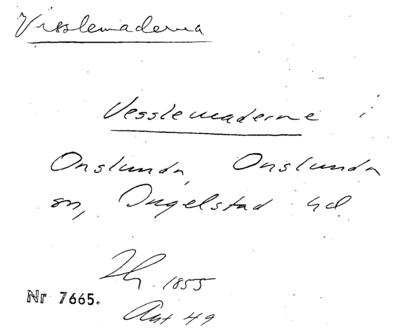 Vesslemaderna
Vesslemaderne i
Onslunda, Onslunda
sn, Ingelstad hd.
1855
Nr 7665.
Akt 49